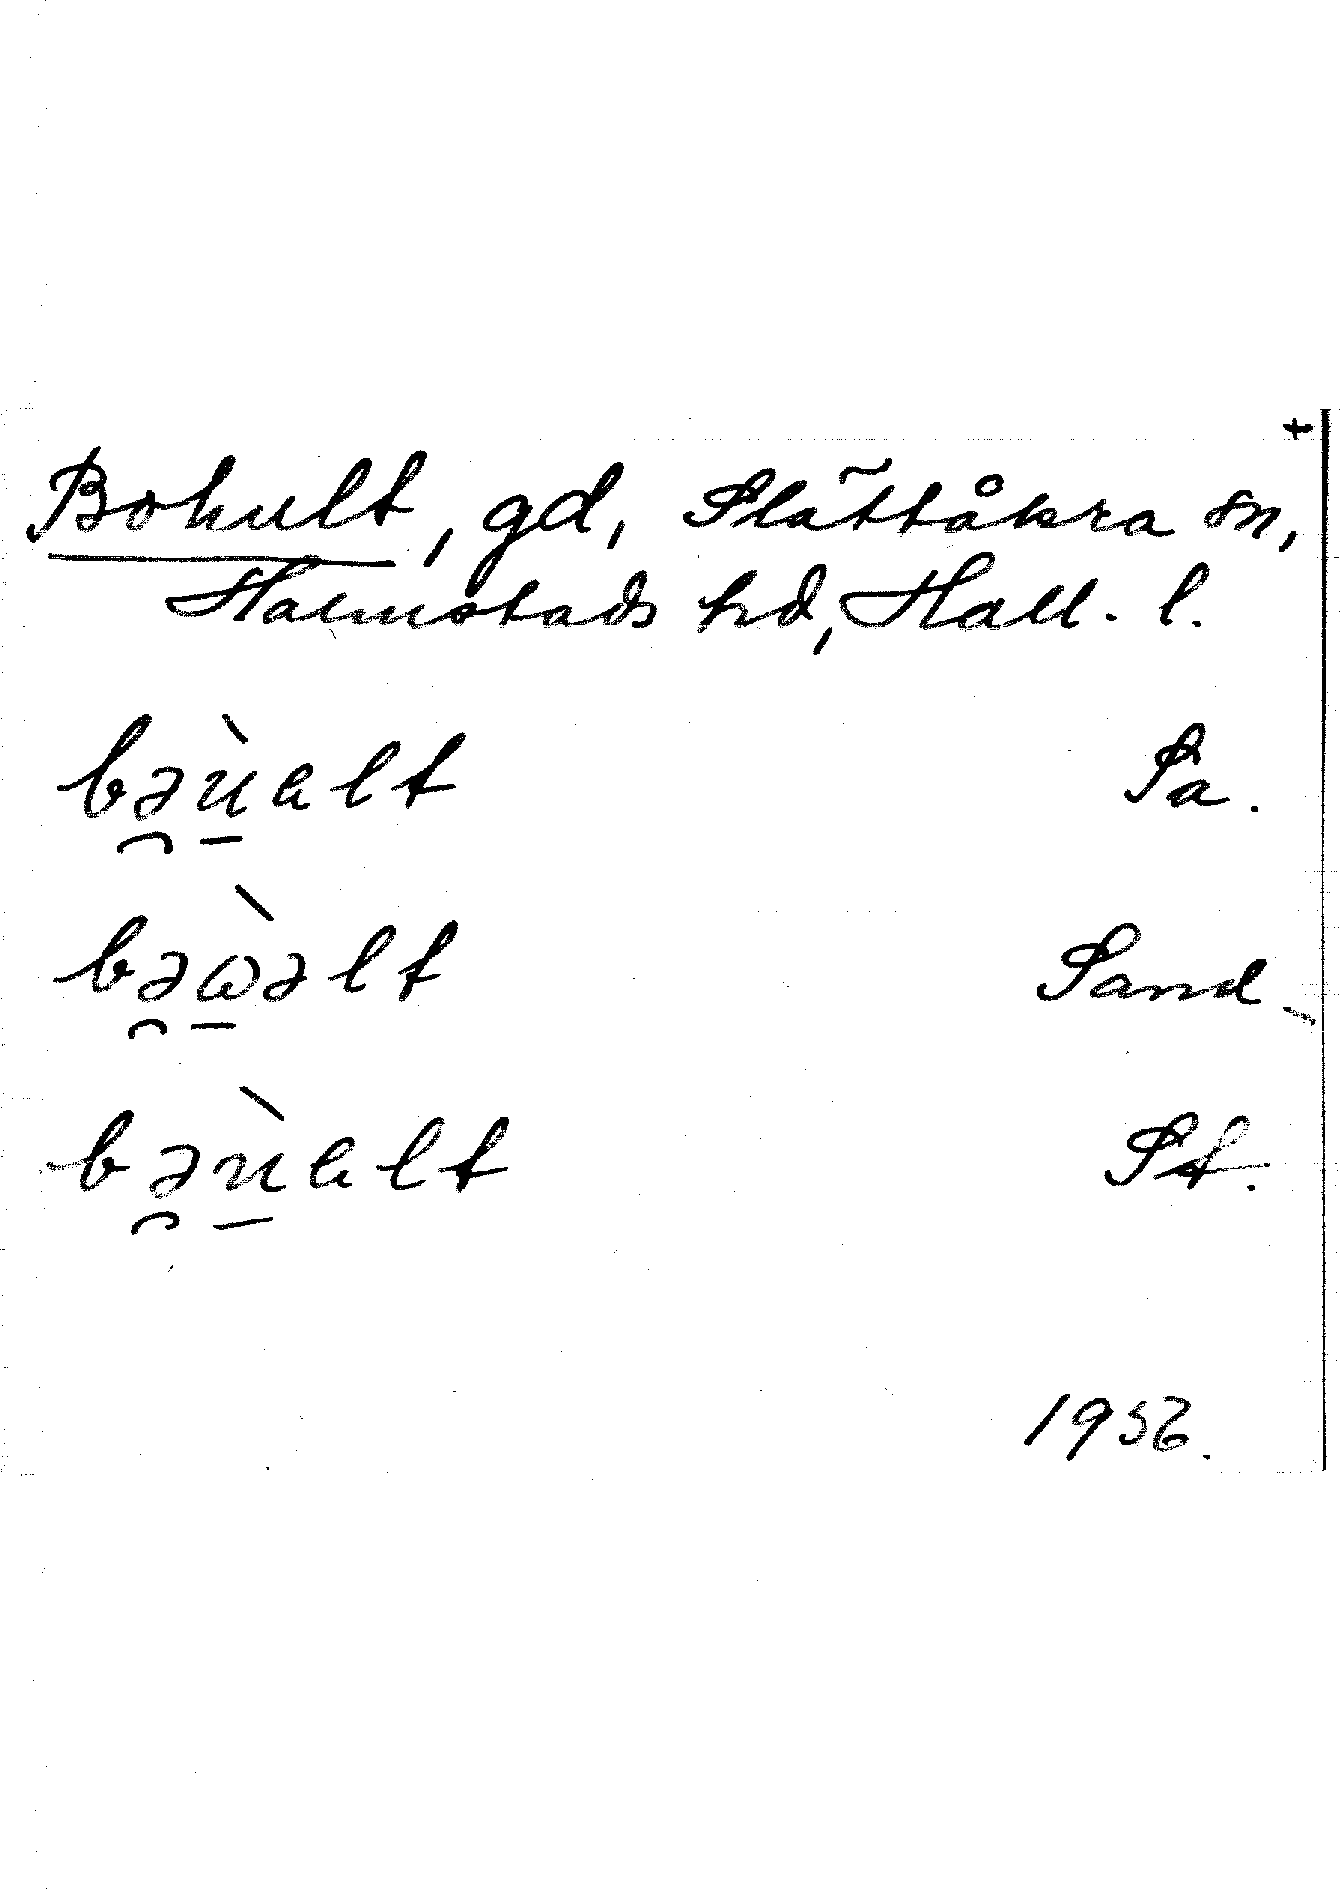 Bohult, gd, Slättåkra sn,
Halmstads hd, Hall. l.
bə̯ù̱alt Sa.
bə̯ὼ̱əlt Sand
bə̯ù̱alt St.
1956.